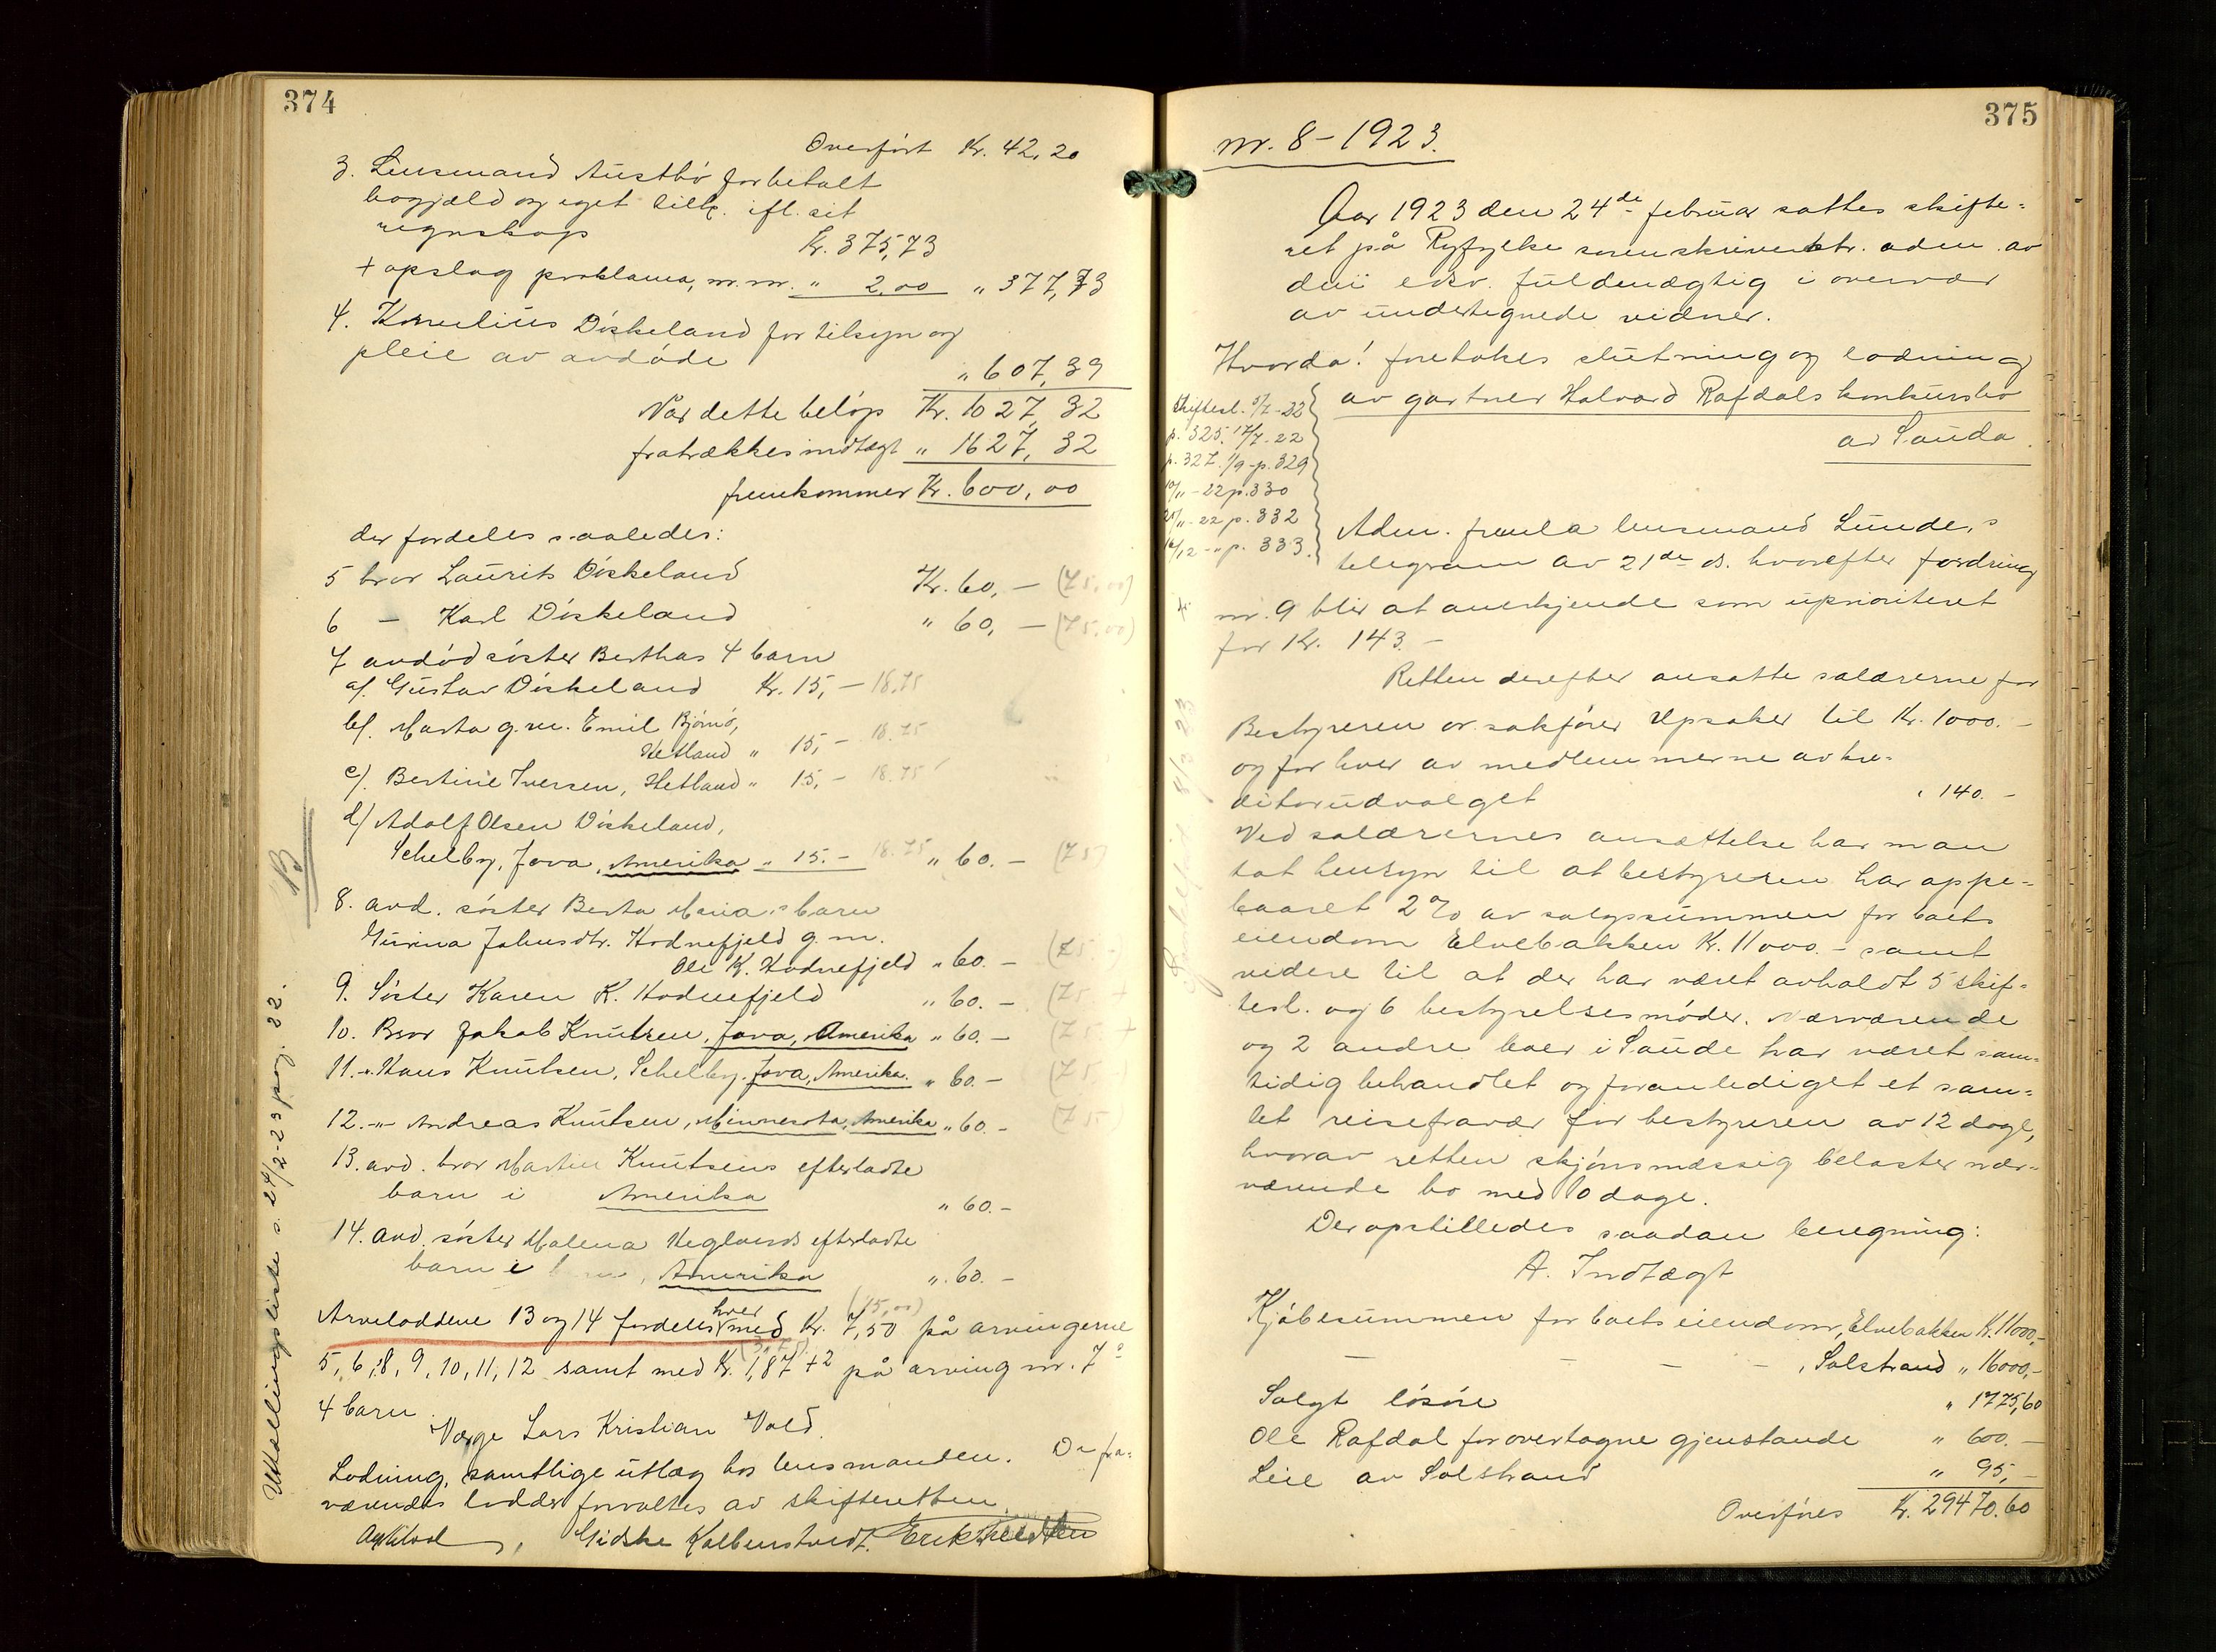 374
Overført Kr. 42,20
3. Lensmand Austbø for betalt
bogjæld og eget tilk. ifl. sit
regnskap Kr. 375,73
+ opslag proklama, m.m. " 2.00 " 377,73
4. Kornelius Diskeland for tilsyn og
pleie av avdøde
" 607,39
Når dette beløp Kr. 1027,32
fratrækkes indtægt " 1627,32
fremkommer Kr. 600,00
der fordeles saaledes:
5 bror Laurits Diskeland Kr. 60,- (75,00)
6 - Karl Diskeland " 60,- (75,00)
7 avdød søster Berthas 4 barn
a/. Gustav Diskeland Kr. 15,- 18.75
b/. Marta g.m. Emil Bjørnø,
Hetland " 15,- 18.75
c/. Bertine Iversen, Hetland " 15,- 18.75
d/ Adolf Olsen Diskeland,
Schelby, Jova, Amerika " 15.- 18.75 " 60.- (75)
8. avd. søster Berta Maria's barn
Gurina Johnsdtr. Hodnefjeld g.m.
Ole K. Hodnefjeld " 60.- (75.
9. Søster Karen K. Hodnefjeld " 60.- (75. +
10. Bror Jakob Knutsen, Jova, Amerika " 60.- (75. +
11. -"- Hans Knutsen, Schelby, Jova, Amerika. " 60.- (75.
12. -"- Andreas Knutsen, Minnesota, Amerika " 60.- (75)
13. avd. bror Martin Knutsens efterladte
barn i Amerika " 60.-
14. avd. søster Malena Heglands efterladte
barn i Amerika " 60.-
(15,00)
Arveloddene 13 og 14 fordeles hver med Kr. 7,50 på arvingerne
(3,75)
5, 6, 8, 9, 10, 11, 12 samt med Kr. 1,87 +2 på arving nr. 7's
4 barn.
Værge Lars Kristian Vold.
Lodning, samtlige utlæg hos lensmanden. De fra-
værendes lodder forvaltes av skifteretten.
Gidske Kolbenstvedt. Erik
Uttællingsliste s. 24/2-23 pag. 22.
B
375
nr. 8 - 1923.
Aar 1923 den 24de februar sattes skifte-
ret på Ryfylke sorenskriverktr. adm. av
den edsv. fuldmægtig i overvær
av undertegnede vidner.
Hvorda! foretokes slutning og lodning
av gartner Halvard Rafdals konkursbo
av Sauda.
Skiftesl. 5/7-22
p. 325. 17/7-22
p. 327. 1/9-p. 329
10/11-22 p. 330
25/11-22 p. 332
16/12 -"- p. 333.
Adm. fremla lensmand Lunde,s
telegram av 21de ds. hvorefter fordring
nr. 9 blir at anerkjende som uprioriteret
for Kr. 143.-
Retten derefter ansatte salærerne for
Bestyreren or. sakfører Upsaker til Kr. 1000.-
og for hver av medlemmerne av kre-
ditorudvalget " 140.-
Ved salærernes ansættelse har man
tat hensyn til at bestyreren har oppe-
baaret 2% av salgssummen for boets
eiendom Elvebakken Kr. 11000.- samt
videre til at der har været avholdt 5 skif-
tesl. og 6 bestyrelsesmøder. Nærværende
og 2 andre boer i Saude har været sam-
tidig behandlet og foranlediget et sam-
let reisefravær for bestyreren av 12 dage,
hvorav retten skjønsmæssig belaster nær-
værende bo med 10 dage.
Der opstilledes saadan beregning:
A. Indtægt
Kjøbesummen for boets eiendom, Elvebakken Kr. 11000,-
- - - - , Solstrand " 16000,-
Solgt løsøre " 1775,60
Ole Rafdal for overtagne gjenstande " 600.-
Leie av Solstrand " 95,-
Overføres Kr. 29470.60